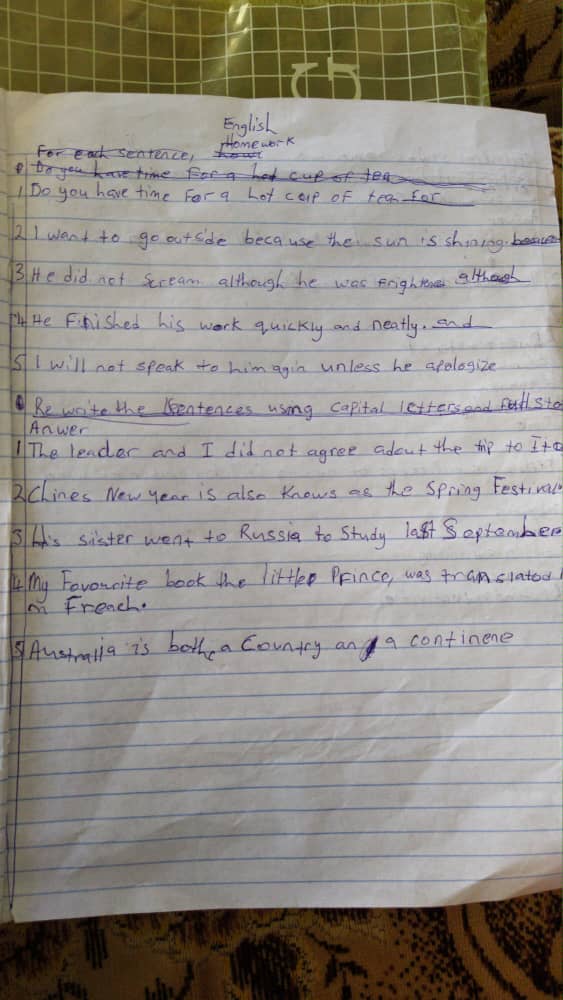 English
Homework
For each sentence,
Do you have time For a hot cup of tea
1 Do you have time For a hot cup OF tea for
2 I want to go outside because the sun is shining.
3 He did not scream although he was Frightened although
4 He Finished his work quickly and neatly. and
5 I will not speak to him agin unless he apologize
Rewrite the sentences using capital letters and full sto
Anwer
1 The leader and I did not agree adout the tip to Ita
2 Chines New year is also Knows as the Spring Festival
3 His sister went to Russia to Study last September
4 My Favourite book the little Prince, was translated
in Freach.
5 Australia is both a Country and a continene